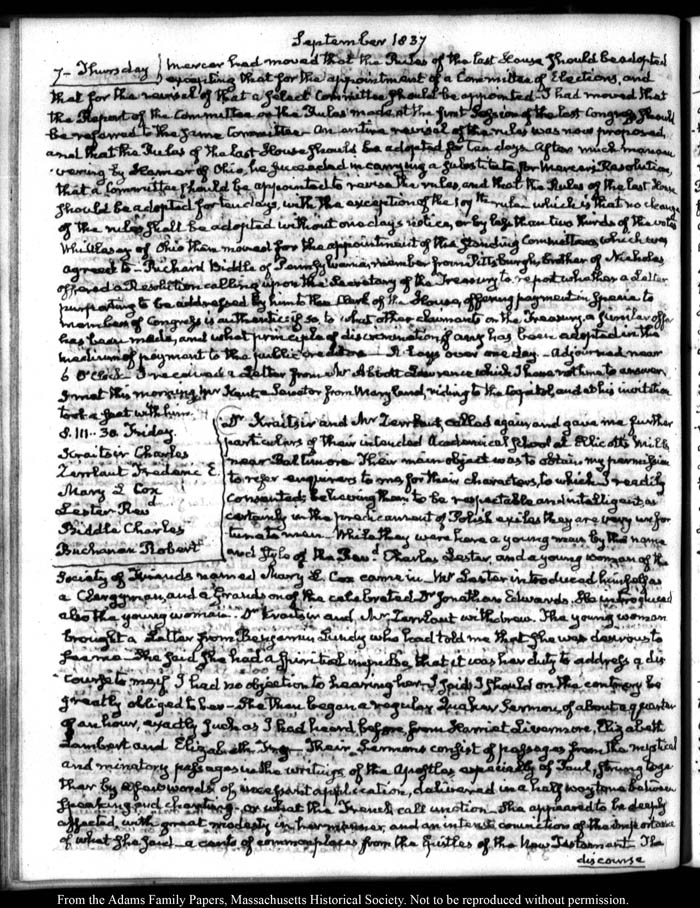 September 1837
7 - Thursday } Mercer had moved that the Rules of the last House should be adopted
excepting that for the appointment of a Committee of Elections, and
that for the revisal of that a select Committee should be appointed. I had moved that
the Report of the Committee on the Rules made at the first Session of the last Congress should
be referred to the same Committee. An entire revisal of the rules was now proposed,
and that the Rules of the last House should be adopted for ten days. After much manoeu
vering by Hamer of Ohio, he succeeded in carrying a substitute for Mercer's Resolution,
that a Committee should be appointed to revise the rules, and that the Rules of the last House
should be adopted for ten days, with the exception of the rule which is that no change
of the rules shall be adopted without one days notice, or by less than two thirds of the votes
Whittlesey of Ohio then moved for the appointment of the Standing Committees, which was
agreed to - Richard Biddle of Pennsylvania, member from Pittsburgh, brother of Nicholas
offered a Resolution calling upon the Secretary of the Treasury to report whether a Letter
purporting to be addressed by him to the Clerk of the House, offering payment in specie to
members of Congress is authentic; if so, to what other claimants on the Treasury, a similar offer
has been made, and what principle of discrimination if any has been adopted in the
medium of payment to the public creditors - It lays over one day. Adjourned near
6 O'Clock. I received a Letter from Mr Abbott Lawrence which I have not time to answer
I met this morning Mr Kent, a Senator from Maryland, riding to the Capitol, and at his invitation
took a seat with him.
8. III.. 30. Friday.
Kraitsir Charles
Zerrlaut Frederic E
Mary L Cox
Lester Revd
Biddle Charles
Buchanan Robert
Dr Kraitsir and Mr Zerrlaut called again, and gave me further
particulars of their intended Academical School at Ellicott's Mills
near Baltimore. Their main object was to obtain my permission
to refer enquirers to me for their characters, to which I readily
consented; believing them to be respectable and intelligent, as
certainly in the predicament of Polish exiles they are very unfor
tunate men. While they were here a young man by the name
and style of the Revd Charles Lester and a young woman of the
Society of Friends named Mary L. Cox came in. Mr Lester introduced himself as
a Clergyman, and a Grandson of the celebrated Dr Jonathan Edwards. He introduced
also the young woman. Dr Kraitsir and Mr Zerrlaut withdrew. The young woman
brought a Letter from Benjamin Lundy who had told me that she was desirous to
see me - She said she had a spiritual impulse that it was her duty to address a dis
course to me if I had no objection to hearing her. I said I should on the contrary be
greatly obliged to her - She then began a regular Quaker Sermon, of about a quarter
of an hour, exactly such as I had heard before from Harriet Livermore, Elizabeth
Lambert and Elizabeth Their Sermons consist of passages from the mystical
and minatory passages in the writings of the Apostles especially of Paul, strung toge
ther by a few words of incessant application, delivered in a half way tone between
speaking and chanting, or what the French call unction. She appeared to be deeply
affected, with great modesty in her manner, and an intent conviction of the importance
of what she said - a cento of commonplaces from the Epistles of the New Testament. The
discourse
From the Adams Family Papers, Massachusetts Historical Society. Not to be reproduced without permission.